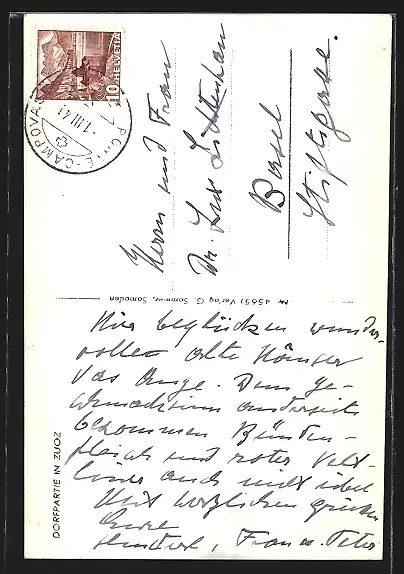 HELVETIA
10
PONTE-CAMPOVAST
-1.III.41
Herrn und Frau
Dr. Lux Lichtenhan
Basel
Stiftsgasse.
Nr. 45651 Verlag G. Sommer, Samaden
DORFPARTIE IN ZUOZ
Hier beglücken wunder-
volle alte Häuser
das Auge. Dem Ge-
schmacksinn anderseits
bekommen Bünden-
fleisch und roter Velt-
liner auch nicht übel
Mit herzlichen Grüssen
Eure
Frau u. Peter